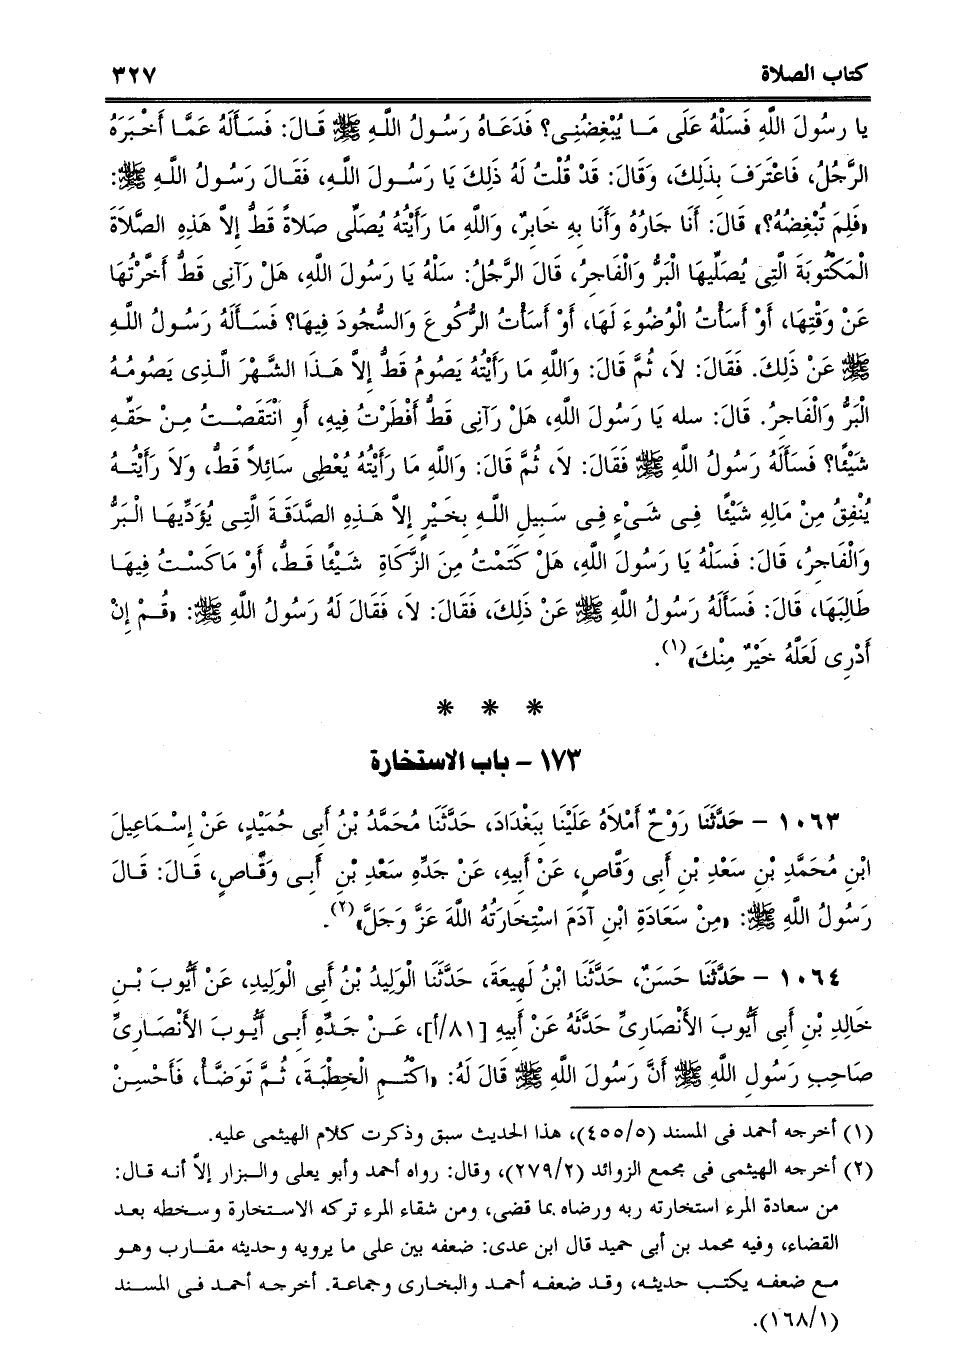 كتاب الصلاة ٣٢٧
يا رسول اللَّهِ فَسَلْهُ عَلَى مَا يُبْغِضُنِى؟ فَدَعَاهُ رَسُولُ اللَّهِ ﷺ قَالَ: فَسَأَلَهُ عَمَّا أَخْبَرَهُ
الرَّجُلُ، فَاعْتَرَفَ بِذَلِكَ، وَقَالَ: قَدْ قُلْتُ لَهُ ذَلِكَ يَا رَسُولَ اللَّهِ، فَقَالَ رَسُولُ اللَّهِ ﷺ:
«فَلِمَ تُبْغِضُهُ؟» قَالَ: أَنَا جَارُهُ وَأَنَا بِهِ خَابِرٌ، وَاللَّهِ مَا رَأَيْتُهُ يُصَلِّى صَلاةً قَطُّ إِلاَّ هَذِهِ الصَّلاَةَ
الْمَكْتُوبَةَ الَّتِى يُصَلِّيهَا الْبَرُّ وَالْفَاجِرُ، قَالَ الرَّجُلُ: سَلْهُ يَا رَسُولَ اللَّهِ، هَلْ رَآنِى قَطُّ أَخَّرْتُهَا
عَنْ وَقْتِهَا، أَوْ أَسَأْتُ الْوُضُوءَ لَهَا، أَوْ أَسَأْتُ الرُّكُوعَ وَالسُّجُودَ فِيهَا؟ فَسَأَلَهُ رَسُولُ اللَّهِ
ﷺ عَنْ ذَلِكَ. فَقَالَ: لاَ، ثُمَّ قَالَ: وَاللَّهِ مَا رَأَيْتُهُ يَصُومُ قَطُّ إِلاَّ هَذَا الشَّهْرَ الَّذِى يَصُومُهُ
الْبَرُّ وَالْفَاجِرُ. قَالَ: سله يَا رَسُولَ اللَّهِ، هَلْ رَآنِى قَطُّ أَفْطَرْتُ فِيهِ، أَوِ انْتَقَصْتُ مِنْ حَقِّهِ
شَيْئًا؟ فَسَأَلَهُ رَسُولُ اللَّهِ ﷺ فَقَالَ: لاَ، ثُمَّ قَالَ: وَاللَّهِ مَا رَأَيْتُهُ يُعْطِى سَائِلاً قَطُّ، وَلاَ رَأَيْتُهُ
يُنْفِقُ مِنْ مَالِهِ شَيْئًا فِى شَىْءٍ فِى سَبِيلِ اللَّهِ بِخَيْرٍ إِلاَّ هَذِهِ الصَّدَقَةَ الَّتِى يُؤَدِّيهَا الْبَرُّ
وَالْفَاجِرُ، قَالَ: فَسَلْهُ يَا رَسُولَ اللَّهِ، هَلْ كَتَمْتُ مِنَ الزَّكَاةِ شَيْئًا قَطُّ، أَوْ مَاكَسْتُ فِيهَا
طَالِبَهَا، قَالَ: فَسَأَلَهُ رَسُولُ اللَّهِ ﷺ عَنْ ذَلِكَ، فَقَالَ: لاَ، فَقَالَ لَهُ رَسُولُ اللَّهِ ﷺ: «قُمْ إِنْ
أَدْرِى لَعَلَّهُ خَيْرٌ مِنْكَ»(١).
* * *
١٧٣ - باب الاستخارة
١٠٦٣ - حَدَّثَنَا رَوْحٌ أَمْلاَهُ عَلَيْنَا بِبَغْدَادَ، حَدَّثَنَا مُحَمَّدُ بْنُ أَبِى حُمَيْدٍ، عَنْ إِسْمَاعِيلَ
ابْنِ مُحَمَّدِ بْنِ سَعْدِ بْنِ أَبِى وَقَّاصٍ، عَنْ أَبِيهِ، عَنْ جَدِّهِ سَعْدِ بْنِ أَبِى وَقَّاصٍ، قَالَ: قَالَ
رَسُولُ اللَّهِ ﷺ: «مِنْ سَعَادَةِ ابْنِ آدَمَ اسْتِخَارَتُهُ اللَّهَ عَزَّ وَجَلَّ»(٢).
١٠٦٤ - حَدَّثَنَا حَسَنٌ، حَدَّثَنَا ابْنُ لَهِيعَةَ، حَدَّثَنَا الْوَلِيدُ بْنُ أَبِى الْوَلِيدِ، عَنْ أَيُّوبَ بْنِ
خَالِدِ بْنِ أَبِى أَيُّوبَ الأَنْصَارِىِّ حَدَّثَهُ عَنْ أَبِيهِ [٨١/أ]، عَنْ جَدِّهِ أَبِى أَيُّوبَ الأَنْصَارِىِّ
صَاحِبِ رَسُولِ اللَّهِ ﷺ أَنَّ رَسُولَ اللَّهِ ﷺ قَالَ لَهُ: «اكْتُمِ الْخِطْبَةَ، ثُمَّ تَوَضَّأْ، فَأَحْسِنْ
(١) أخرجه أحمد فى المسند (٤٥٥/٥)، هذا الحديث سبق وذكرت كلام الهيثمى عليه.
(٢) أخرجه الهيثمى فى مجمع الزوائد (٢٧٩/٢)، وقال: رواه أحمد وأبو يعلى والبزار إلاَّ أنه قال:
من سعادة المرء استخارته ربه ورضاه بما قضى، ومن شقاء المرء تركه الاستخارة وسخطه بعد
القضاء، وفيه محمد بن أبى حميد قال ابن عدى: ضعفه بين على ما يرويه وحديثه مقارب وهو
مع ضعفه يكتب حديثه، وقد ضعفه أحمد والبخارى وجماعة. أخرجه أحمد فى المسند
(١٦٨/١).